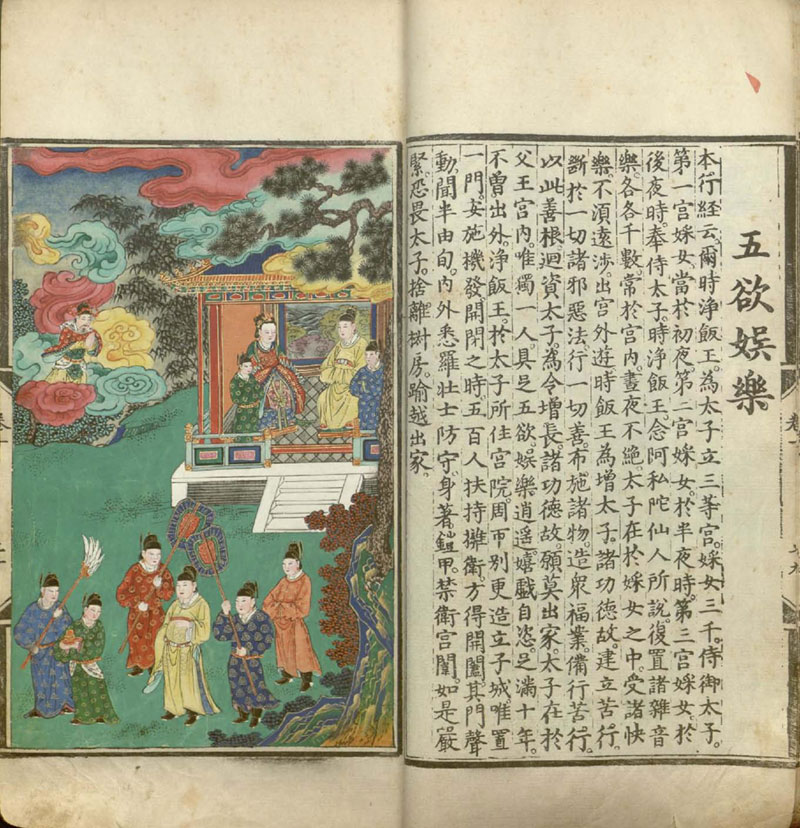 五欲娛樂
本行経云。爾時淨飯王。為太子立三等宮。婇女三千。侍御太子。
第一宮婇女。當於初夜。第二宮婇女。於半夜時。第三宮婇女。於
後夜時。奉侍太子。時淨飯王。念阿私陀仙人所說。復置諸雜音
樂。各各千數。常於宮內。晝夜不絶。太子在於婇女之中。受諸快
樂。不須遠涉。出宮外遊。時飯王為增太子。諸功德故。建立苦行。
斷於一切諸邪惡法。行一切善。布施諸物。造衆福業。備行苦行。
以此善根。迴資太子。為令增長諸功德故。願莫出家。太子在於
父王宮內。唯獨一人。具足五欲。娛樂逍遙。嬉戲自恣。足滿十年。
不曾出外。淨飯王。於太子所住宮院。周帀別更造立子城。唯置
一門。安施機發。開閉之時。五百人扶持擁衛。方得開闔。其門聲
動。聞半由旬。內外悉羅壯士防守。身著鎧甲。禁衛宮闈。如是嚴
緊。恐畏太子。捨離樹房。踰越出家。